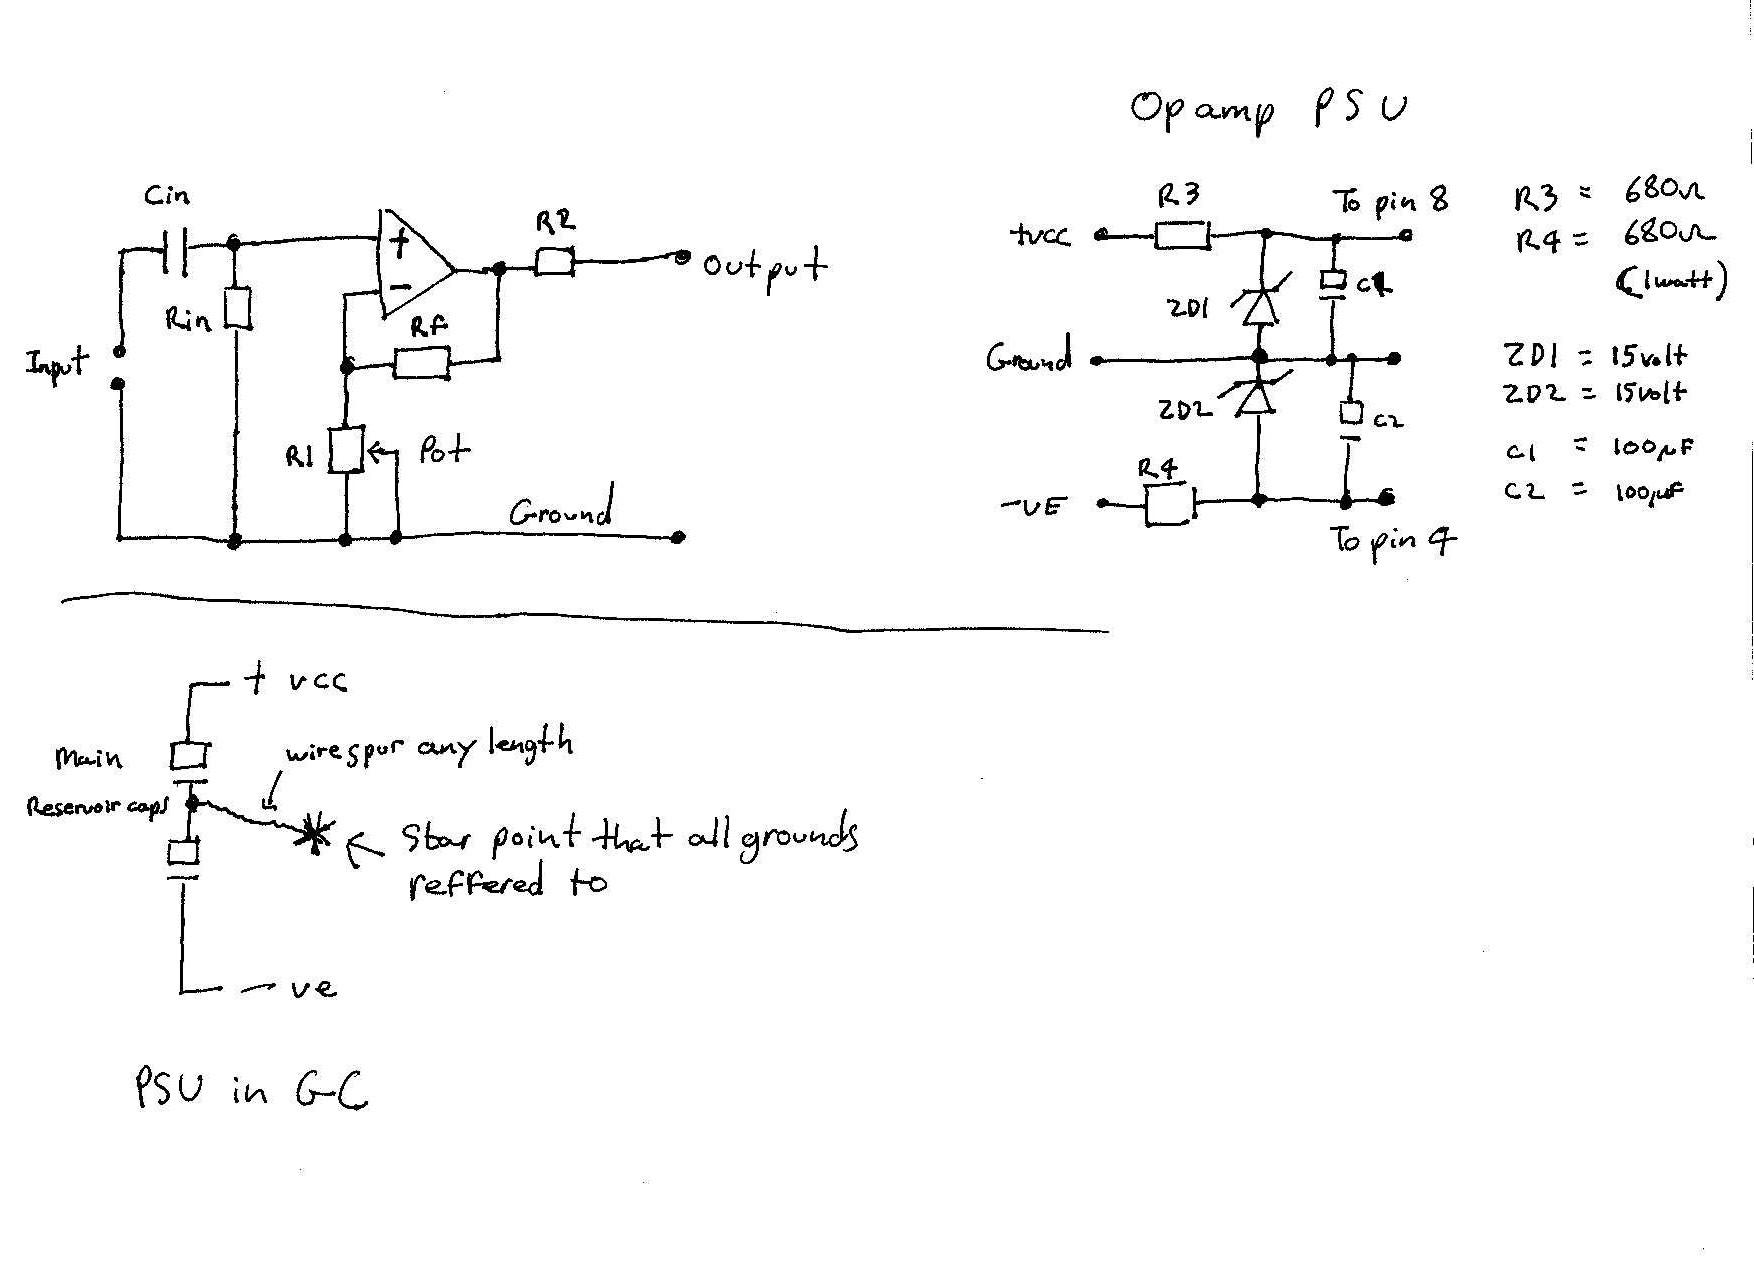 Cin
Rin
Input
+
-
R2
Output
Rf
R1
Pot
Ground
Op amp PSU
R3
To pin 8
+vcc
ZD1
C1
Ground
ZD2
C2
R4
-VE
To pin 4
R3 = 680Ω
R4 = 680Ω
(1watt)
ZD1 = 15volt
ZD2 = 15volt
C1 = 100µF
C2 = 100µF
+ vcc
Main
Reservoir caps
wire spur any length
Star point that all grounds
reffered to
- ve
PSU in GC